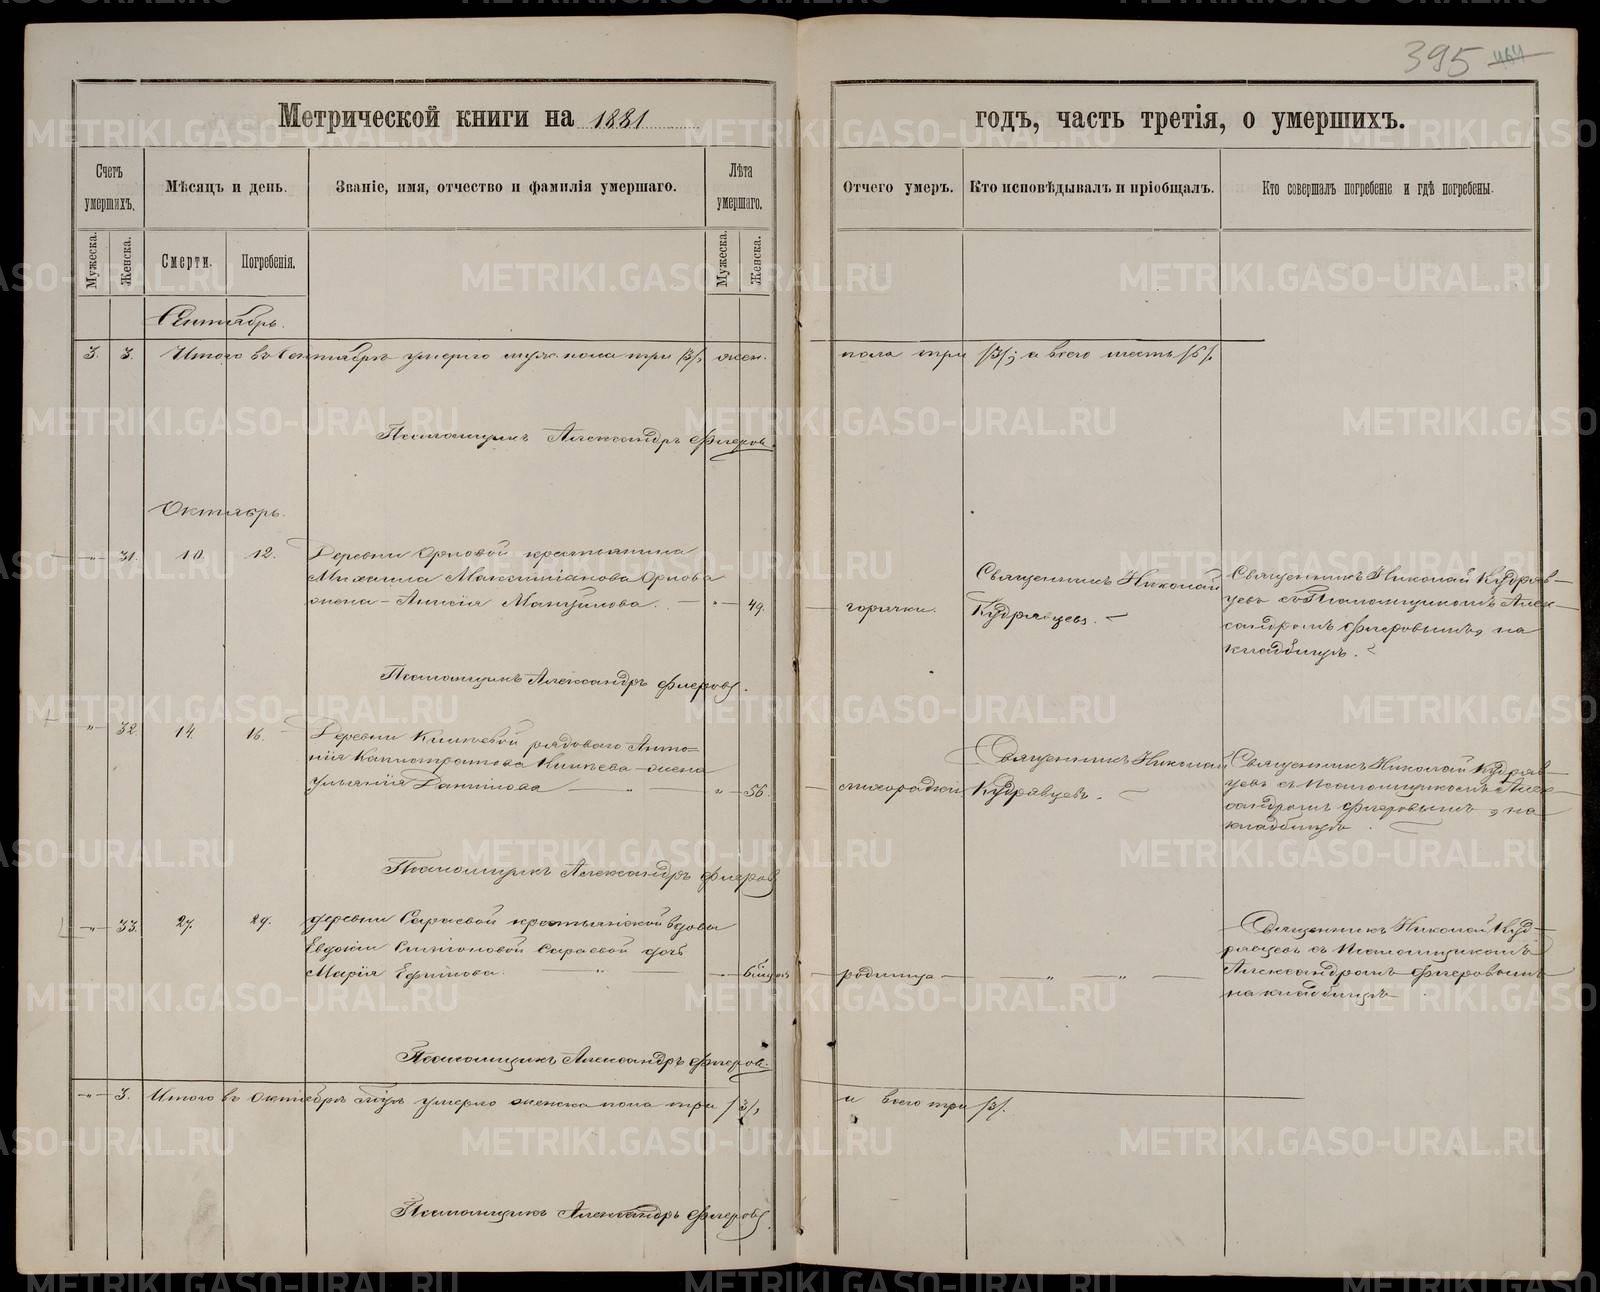 395 464
Метрической книги на 1881
годъ, часть третія, о умершихъ.
Счетъ умершихъ.
Мѣсяцъ и день.
Званіе, имя, отчество и фамилія умершаго.
Лѣта умершаго.
Отчего умеръ.
Кто исповѣдывалъ и пріобщалъ.
Кто совершалъ погребеніе и гдѣ погребены.
Мужеска.
Женска.
Смерти.
Погребенія.
Мужеска.
Женска.
Сентябрь.
3. 3. Итого въ Сентябрѣ умерло муж. пола три /3/, жен.
пола три /3/; а всего шесть /6/.
Псаломщикъ Александръ Флеровъ.
Октябрь.
-„- 31. 10. 12. Деревни Орловой крестьянина
Михаила Максиміанова Орлова
жена - Анисія Мануилова. - „ - 49.
горячки.
Священникъ Николай
Кудрявцевъ.
Священникъ Николай Кудряв-
цевъ съ Псаломщикомъ Алек-
сандромъ Флеровымъ, на
кладбищѣ.
Псаломщикъ Александръ Флеровъ.
„ 32. 14. 16. Деревни рядоваго Анто-
нія Каллистратова жена
Ульянія Данилова - „ - „ - 56.
лихорадки
Священникъ Николай
Кудрявцевъ.
Священникъ Николай Кудряв-
цевъ съ Псаломщикомъ Алек-
сандромъ Флеровымъ, на
кладбищѣ.
Псаломщикъ Александръ Флеровъ
-„- 33. 27. 29. Деревни Сараевой крестьянской вдовы
Евдокіи Сараевой дочь
Марія Ефимова. - „ -
родимца - „ - „ -
Священникъ Николай Куд-
рявцевъ съ Псаломщикомъ
Александромъ Флеровымъ
на кладбищѣ
Псаломщикъ Александръ Флеровъ.
-„- 3. Итого въ Октябрѣ умерло женска пола три /3/,
а всего три /3/.
Псаломщикъ Александръ Флеровъ.
METRIKI.GASO-URAL.RU